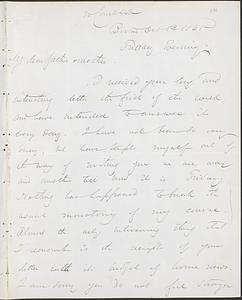 Boston Oct 13th 1865
Friday Evening
My dear father & mother
I received your long and
interesting letter the first of the week
and have intended to answer it
every day. I have not been so very
busy, but have kept myself out of
the way of writing you in one way
and another till now it is Friday.
Nothing has happened to break the
usual monotony of my course
Almost the only interesting thing that
I remember is the receipt of your
letter with its budget of home news.
I am sorry you do not feel stronger